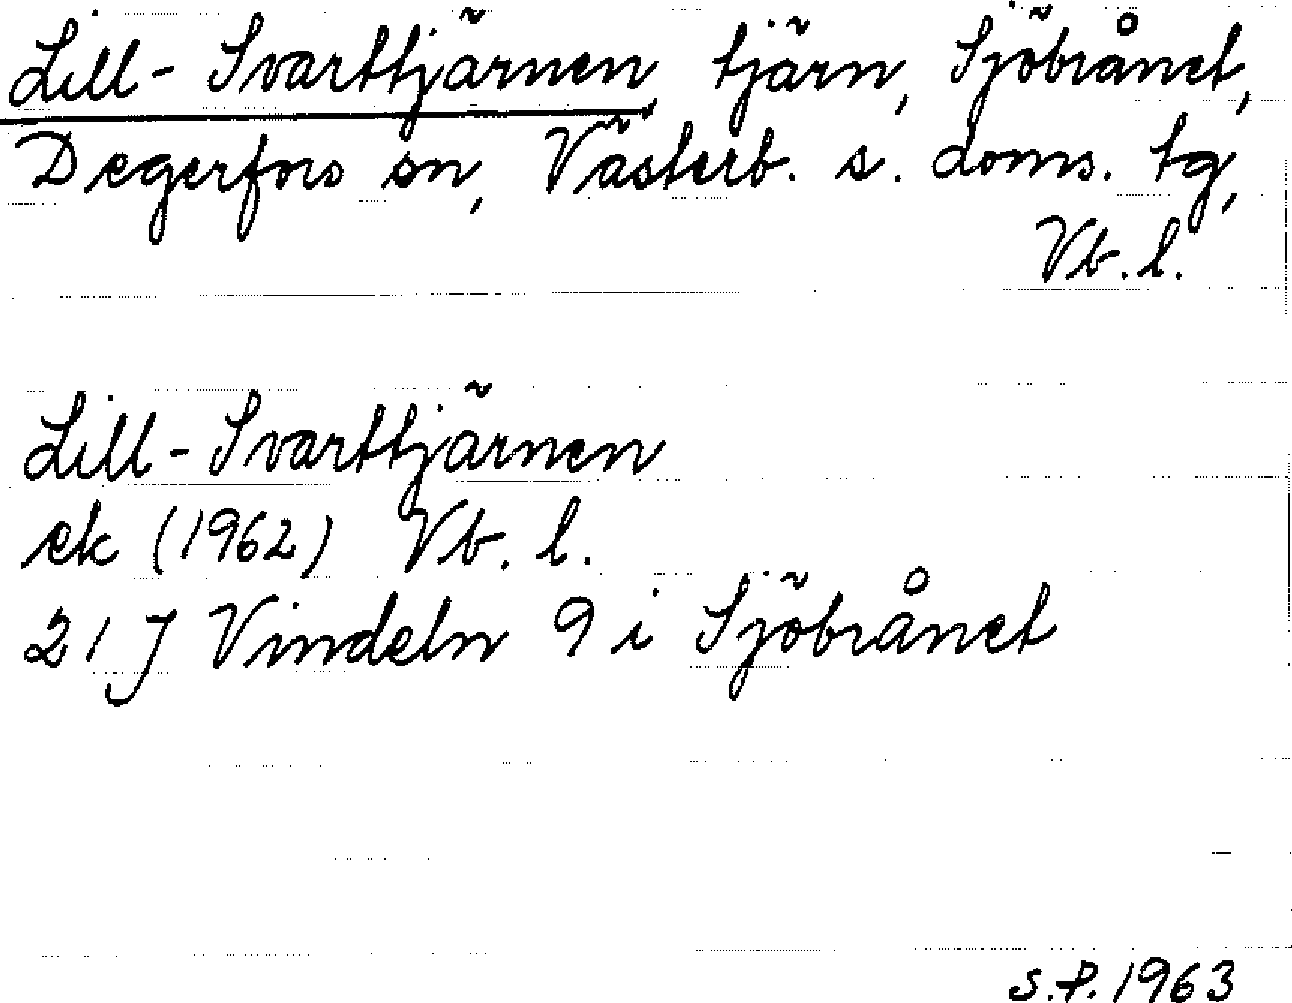 Lill-Svarttjärnen, tjärn, Sjöbrånet,
Degerfors sn, Västerb. s. doms. tg,
Vb. l.
Lill-Svarttjärnen
ek (1962) Vb. l.
21 J Vindeln 9 i Sjöbrånet
S.P. 1963